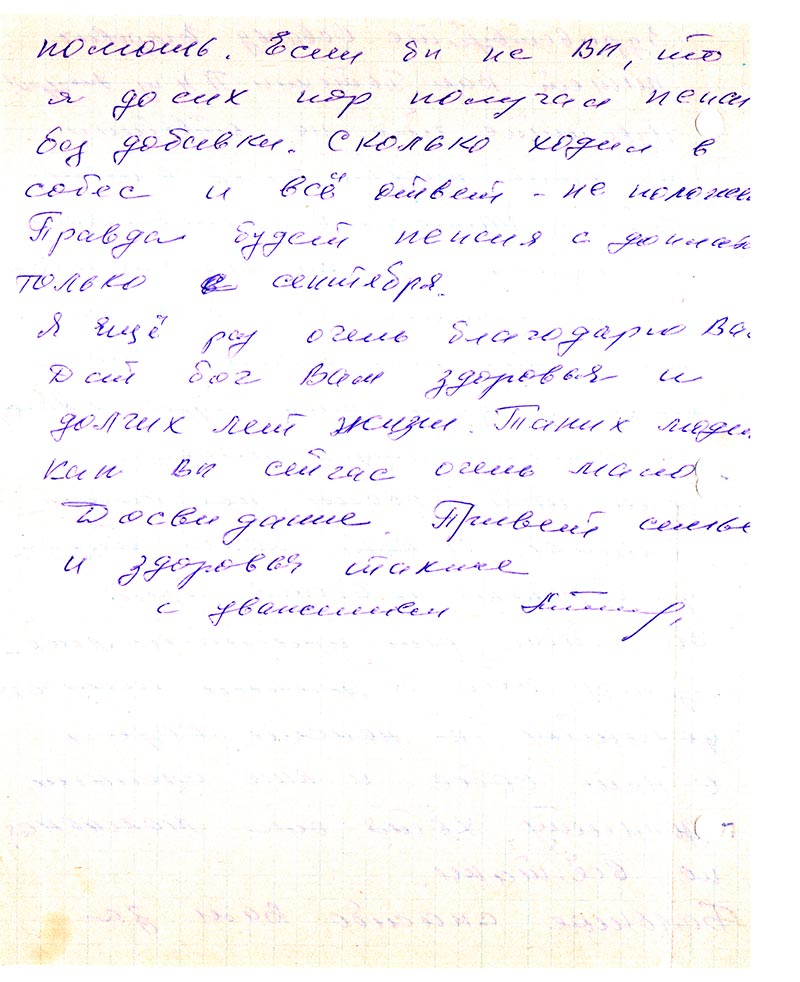 помощь. Если бы не Вы, то
я до сих пор получал пенси
без добавки. Сколько ходил в
собес и всё ответ - не положен
Правда будет пенсия с доплат
только с сентября.
Я ещё раз очень благодарю Ва
Дай бог Вам здоровья и
долгих лет жизни. Таких людей
как Вы сейчас очень мало.
Досвидание. Привет семье
и здоровья также
с уважением